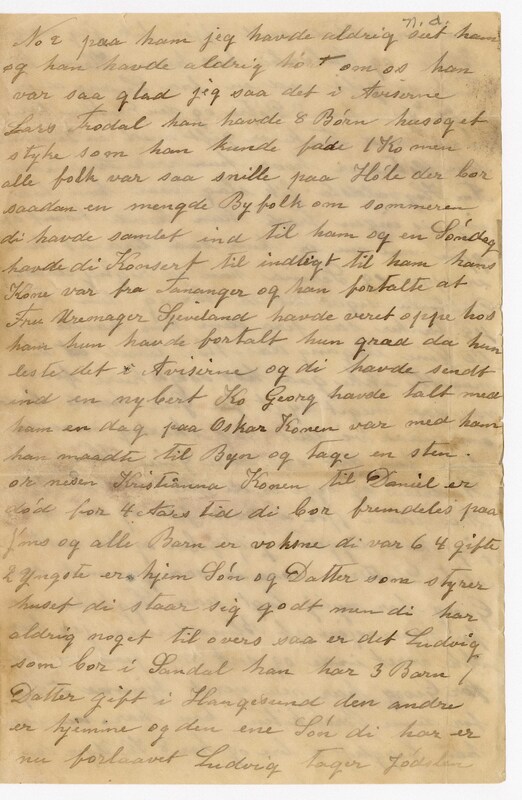 n. d.
No 2 paa ham jeg havde aldrig seet ham
og han havde aldrig hö t om os han
var saa glad jeg saa det i Aviserne
Lars Frodal han havde 8 Börn husoget
styke som han kunde föde 1 Ko men
alle folk var saa snille paa Höle der bor
saadan en mengde Byfolk om sommeren
di havde samlet ind til ham og en Söndag
havde di Konsert til indtegt til ham hans
Kone var fra Tananger og han fortalte at
Fru Uremager Sjeveland havde veret oppe hos
ham hun havde fortalt hun grad da hun
leste det i Aviserne og di havde sendt
ind en nybert Ko Georg havde talt med
ham en dag paa Oskar Konen var med ham
han maadte til Byn og tage en sten.
or neden Kristianna Konen til Daniel er
död for 4 Aars tid di bor fremdeles paa
Jöns og alle Barn er voksne di var 6 4 gifte
2 yngste er hjem Sön og Datter som styrer
huset di staar sig godt men di har
aldrig noget til overs saa er det Ludvig
som bor i Sandal han har 3 Barn 1
Datter gift i Haugesund den andre
er hjemme og den ene Sön di har er
nu forlaavet Ludvig tager